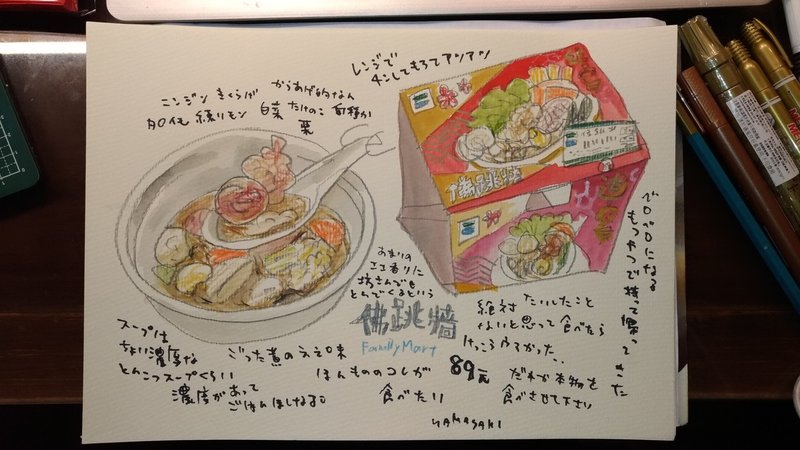 レンジで
チンしてもろてアツアツ
ニンジン きくらげ
からあげ的なん
タロイモ 練りモン 白菜 たけのこ
栗
佛跳牆
でロベロになる
もつやつで持って帰ってきた
あまりの
エエ香りに
坊さんでも
とんでくるという
佛跳牆
FamilyMart
絶対 たいしたこと
ないと思って食べたら
けっこうウマかった..
スープは
ちょい濃厚な
とんこつスープくらい
濃度があって
ごはんほしなる。
ごった煮のええ味
ほんもののコレが
食べたい
89元
だれか本物を
食べさせて下さい
YAMASAKI